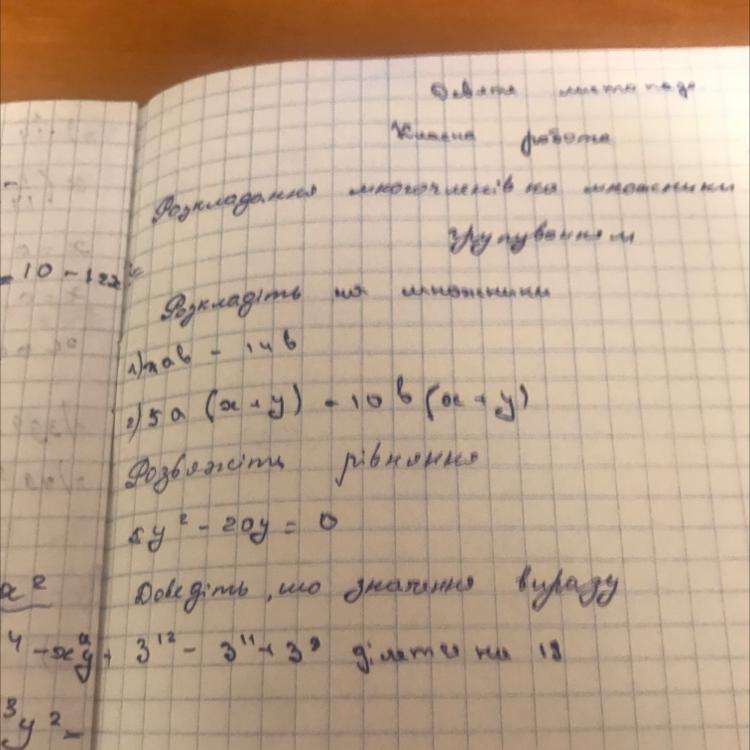 Дев'яте листопада
Класна робота
Розкладання многочленів на множники
групуванням
= 10 - 12x
Розкладіть на множники
1) 7ab - 14b
2) 5a (x + y) - 10b (x + y)
Розвяжіть рівняння
5y² - 20y = 0
a²
Доведіть, що значення виразу
3¹² - 3¹¹ + 3⁹ ділеться на 19
³y² -